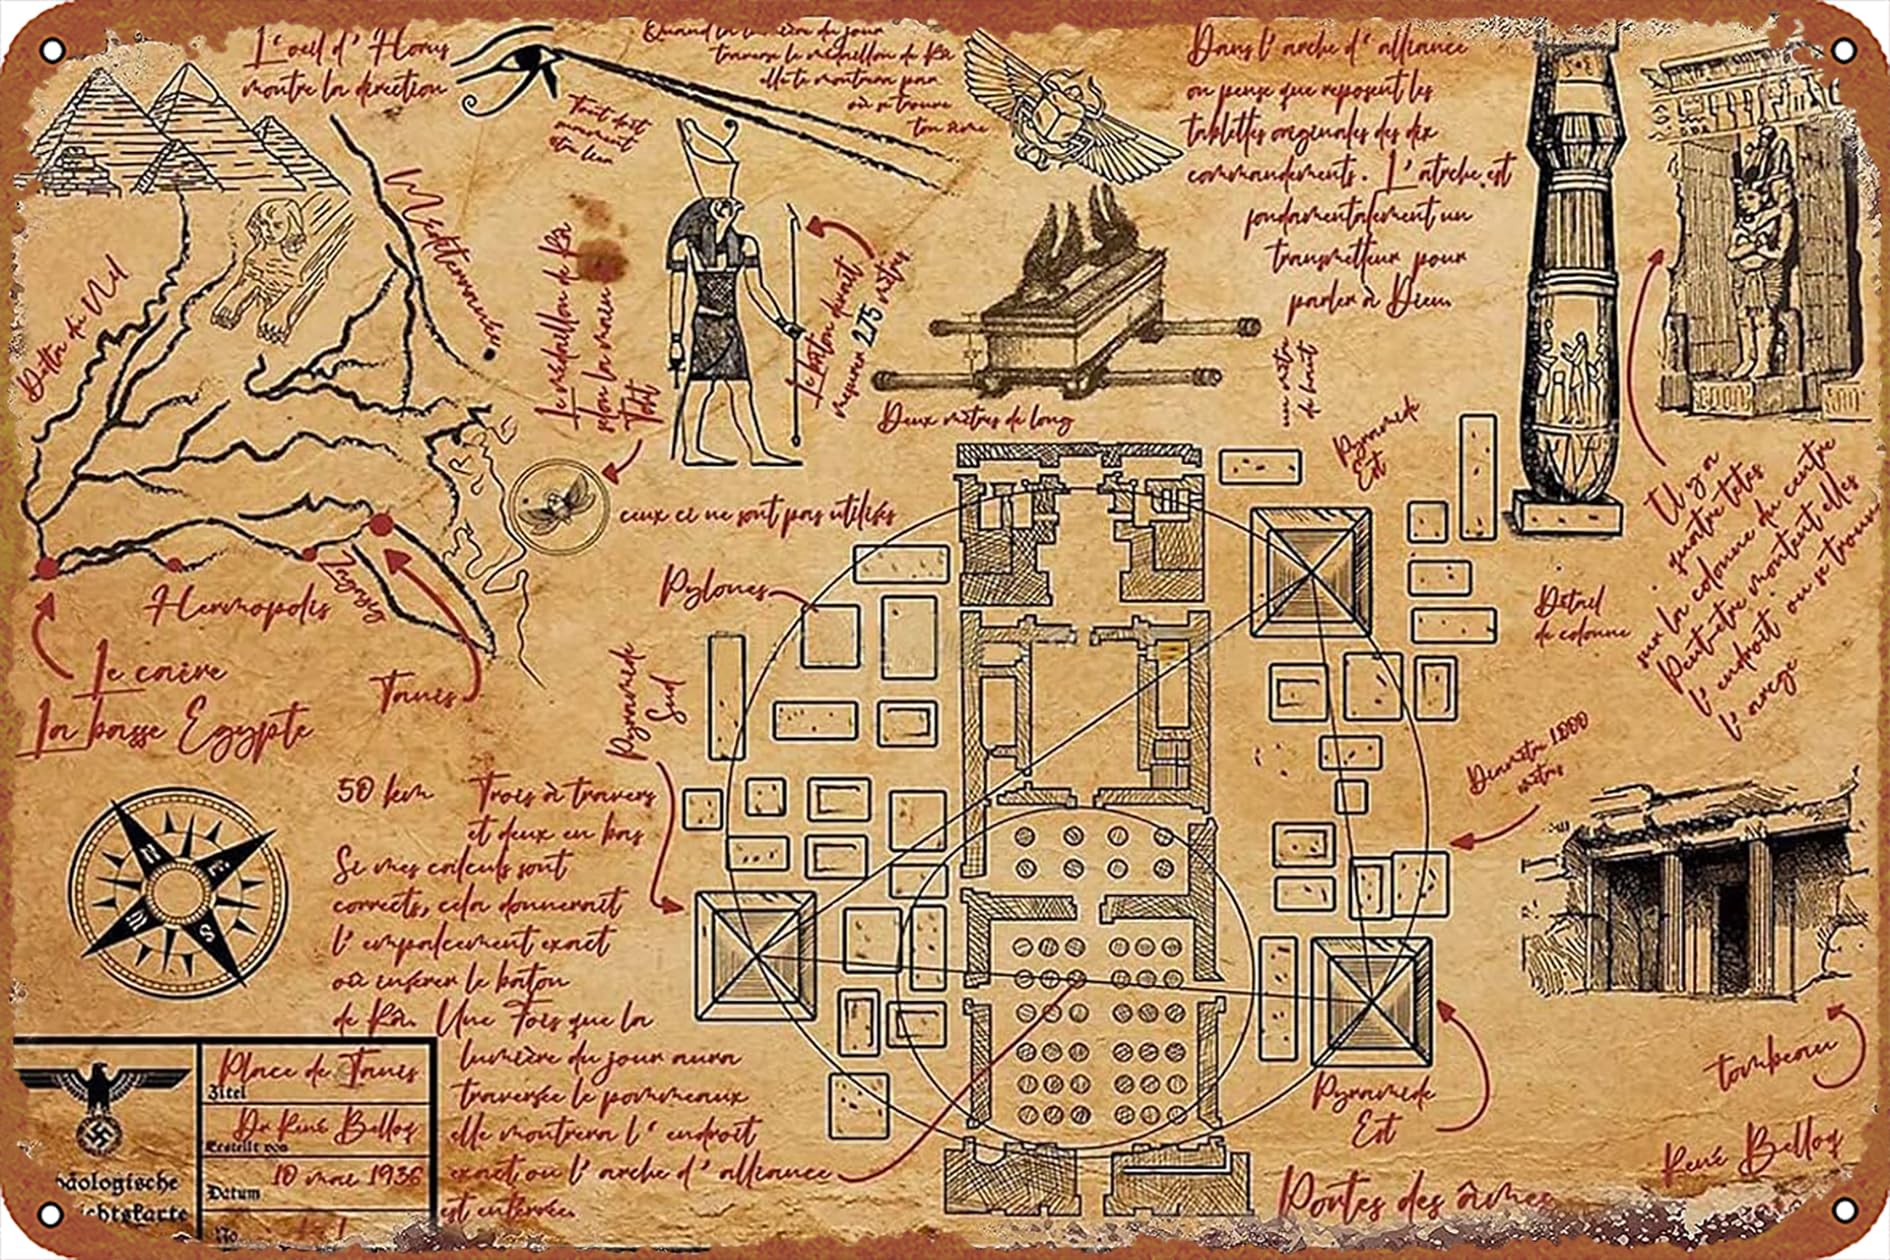 L'oeil d'Horus
montre la direction
Quand la lumière du jour
traverse le médaillon de Râ
elle te montrera par
où se trouve
ton âme
Tout doit
être lieu
Dans l'arche d'alliance
on pense que reposent les
tablettes originales des dix
commandements. L'atrche est
fondamentalement un
transmetteur pour
parler à Dieu.
Mediterrannée
Delta du Nil
Le médaillon de Râ
selon la main
Le bâton devait
mesurer 275 mètres
Deux mètres de long
un mètre
de haut
ceux ci ne sont pas utilisés
Pyramide
Est
Il y a
quatre têtes
sur la colonne du centre
Peut-être montrent elles
l'endroit ou se trouve
Détail
de colonne
Pylones
Hermopolis
Zagazig
Le caire
La basse Egypte
Tanis
Pyramide
Sud
Diamètre 1000
mètres
50 km
Trois à travers
et deux en bas
Si mes calculs sont
corrects, cela donnerait
l'emplacement exact
où insérer le bâton
de Râ. Une Fois que la
lumière du jour aura
traversée le pommeaux
elle montrera l'endroit
exact ou l'arche d'alliance
est enterrée.
N
E
S
W
Place de Tanis
Titel
Dr René Belloq
Erstellt von
10 mai 1936
Datum
No
äologische
chtskarte
Pyramide
Est
tombeau
René Belloq
Portes des âmes